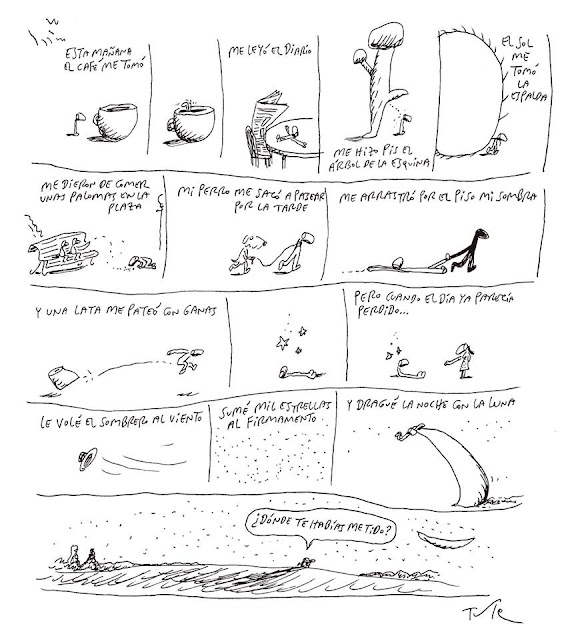 ESTA MAÑANA
EL CAFÉ ME TOMÓ
ME LEYÓ EL DIARIO
ME HIZO PIS EL
ÁRBOL DE LA ESQUINA
EL SOL
ME
TOMÓ
LA
ESPALDA
ME DIERON DE COMER
UNAS PALOMAS EN LA
PLAZA
MI PERRO ME SACÓ A PASEAR
POR LA TARDE
ME ARRASTRÓ POR EL PISO MI SOMBRA
Y UNA LATA ME PATEÓ CON GANAS
PERO CUANDO EL DÍA YA PARECÍA
PERDIDO...
LE VOLÉ EL SOMBRERO AL VIENTO
SUMÉ MIL ESTRELLAS
AL FIRMAMENTO
Y DRAGUÉ LA NOCHE CON LA LUNA
¿DÓNDE TE HABÍAS METIDO?